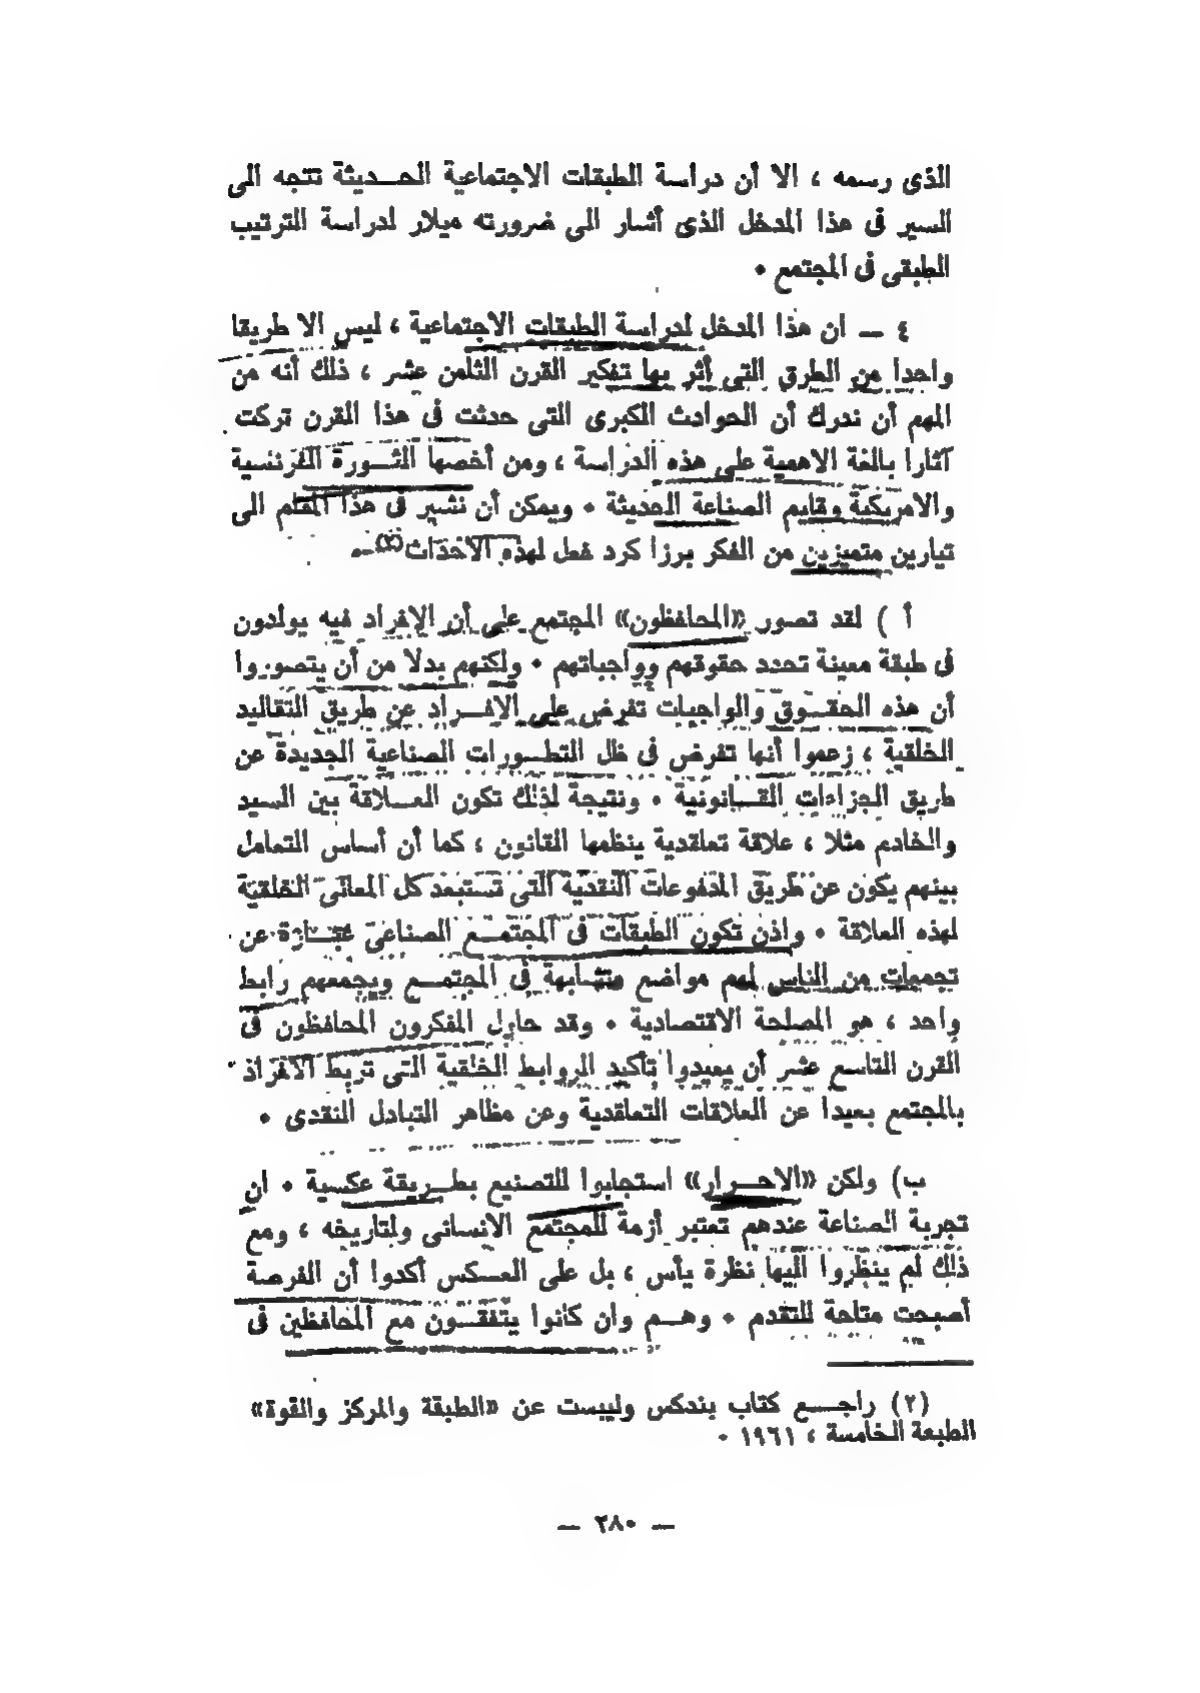 الذى رسمه ، الا أن دراسة الطبقات الاجتماعية الحـــديثة تتجه الى
السير فى هذا المدخل الذى أشار الى ضرورته ميلار لدراسة الترتيب
الطبقى فى المجتمع •
٤ — ان هذا المدخل لدراسة الطبقات الاجتماعية ، ليس الا طريقا
واحدا من الطرق التى أثر بها تفكير القرن الثامن عشر ، ذلك أنه من
المهم أن ندرك أن الحوادث الكبرى التى حدثت فى هذا القرن تركت
آثارا بالغة الاهمية على هذه الدراسة ، ومن أخصها الثـــورة الفرنسية
والامريكية وقايم الصناعة الحديثة • ويمكن أن نشير فى هذا المقام الى
تيارين متميزين من الفكر برزا كرد فعل لهذه الاحداث(٢) •
أ ) لقد تصور «المحافظون» المجتمع على أن الافراد فيه يولدون
فى طبقة معينة تحدد حقوقهم وواجباتهم • ولكنهم بدلا من أن يتصوروا
أن هذه الحقـــوق والواجبات تفرض على الافـــراد عن طريق التقاليد
الخلقية ، زعموا أنها تفرض فى ظل التطـــورات الصناعية الجديدة عن
طريق الجزاءات القـــانونية • ونتيجة لذلك تكون العـــلاقة بين السيد
والخادم مثلا ، علاقة تعاقدية ينظمها القانون ، كما أن أساس التعامل
بينهم يكون عن طريق المدفوعات النقدية التى تستبعد كل المعانى الخلقية
لهذه العلاقة • واذن تكون الطبقات فى المجتمـــع الصناعى عبـــارة عن
تجمعات من الناس لهم مواضع متشابهة فى المجتمـــع ويجمعهم رابط
واحد ، هو المصلحة الاقتصادية • وقد حاول المفكرون المحافظون فى
القرن التاسع عشر أن يعيدوا تأكيد الروابط الخلقية التى تربط الافراد
بالمجتمع بعيدا عن العلاقات التعاقدية وعن مظاهر التبادل النقدى •
ب) ولكن «الاحـــرار» استجابوا للتصنيع بطـــريقة عكسية • ان
تجربة الصناعة عندهم تعتبر أزمة للمجتمع الانسانى ولتاريخه ، ومع
ذلك لم ينظروا اليها نظرة يأس ، بل على العـــكس أكدوا أن الفرصة
أصبحت متاحة للتقدم • وهـــم وان كانوا يتفقـــون مع المحافظين فى
(٢) راجـــع كتاب بندكس وليبست عن «الطبقة والمركز والقوة»
الطبعة الخامسة ، ١٩٦١ •
— ٢٨٠ —